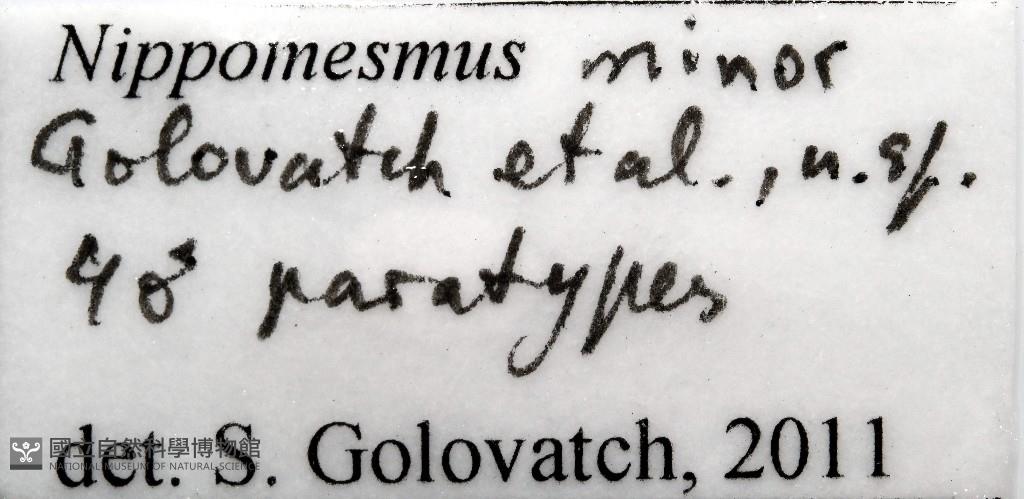 Nippomesmus minor
Golovatch et al., n.sp.
4♂ paratypes
det. S. Golovatch, 2011
國立自然科學博物館
NATIONAL MUSEUM OF NATURAL SCIENCE